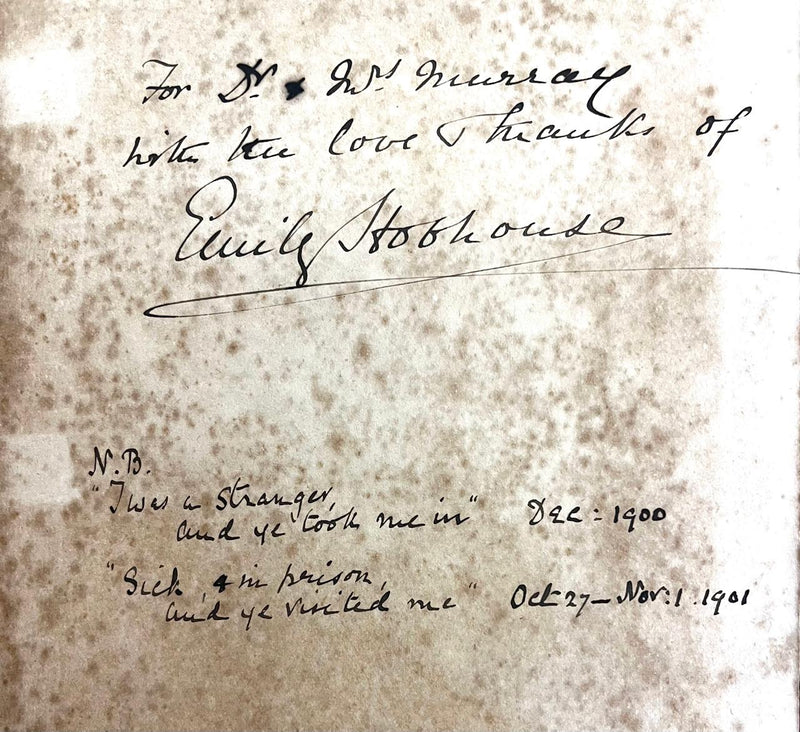 For Dr & Mrs Murray
with the love & thanks of
Emily Hobhouse
N.B.
"I was a stranger,
and ye took me in" Dec: 1900
"Sick, & in prison,
and ye visited me" Oct 27–Nov: 1. 1901